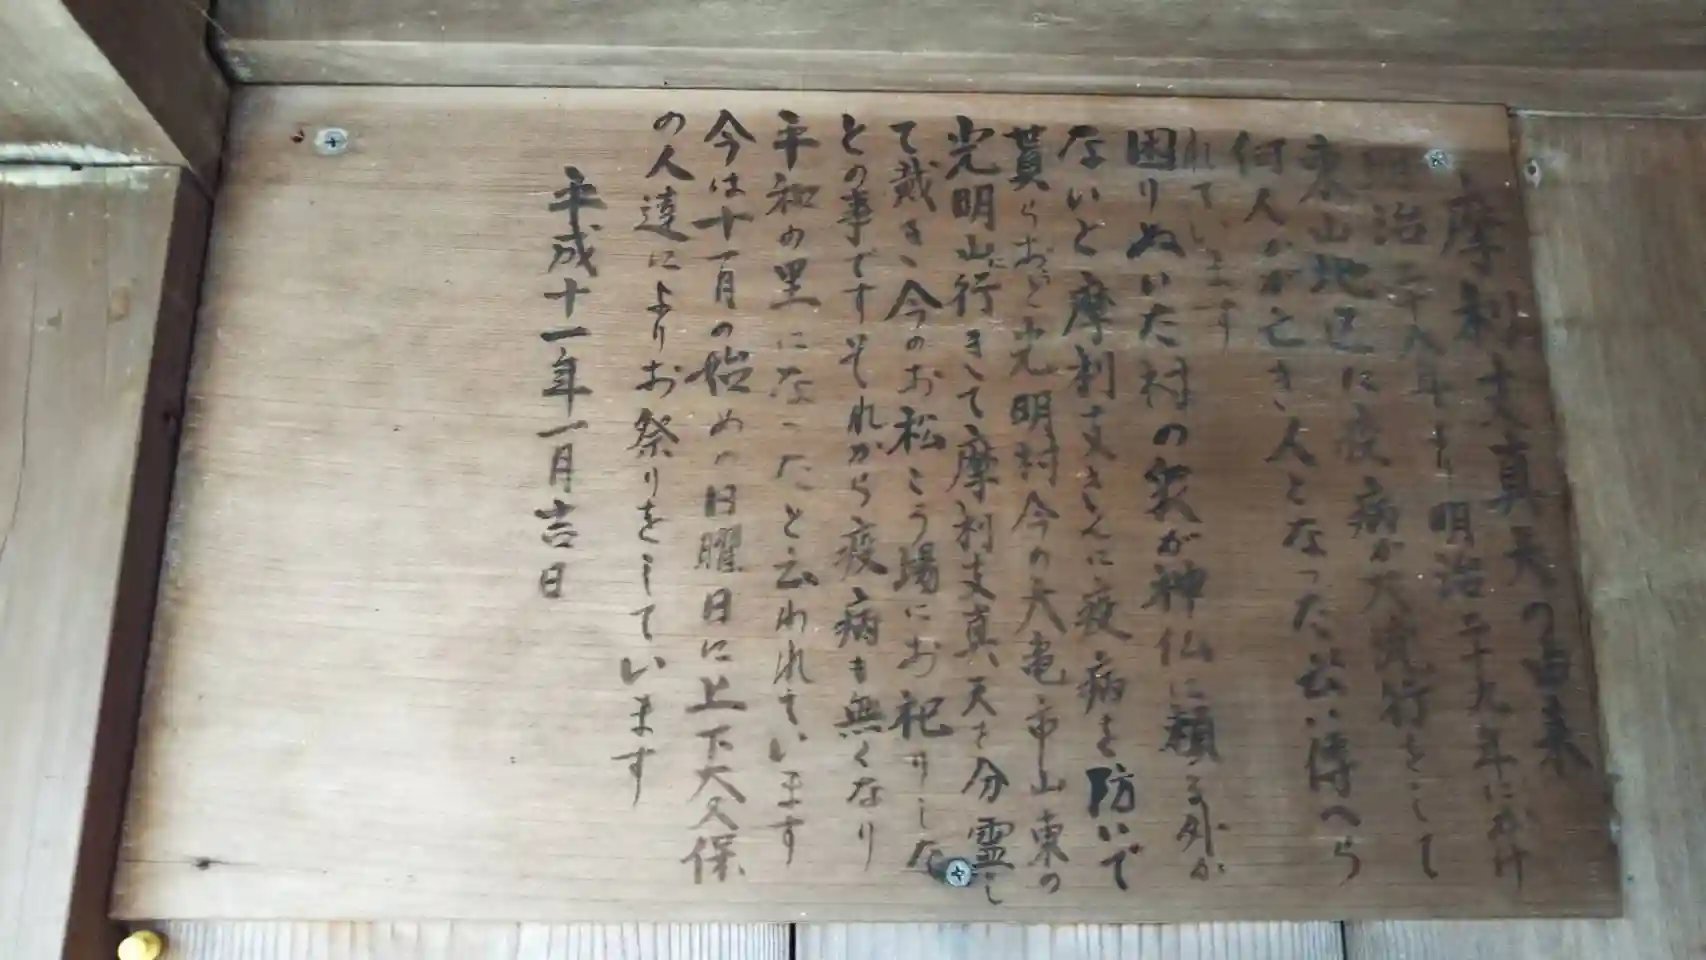 摩利支真天の由来
明治二十八年より明治二十九年にかけ
東山地区に疫病が大流行をして
何人かが亡き人となった云い傳へら
れています
困りぬいた村の衆が神仏に頼る外が
ないと摩利支天さんに疫病を防いで
貰らおうと光明村今の大亀市山東の
光明山に行きて摩利支真天を分霊し
て戴き、今のお松こう場にお祀りした
との事ですそれから疫病も無くなり
平和の里になったと云われています
今は十一月の始めの日曜日に上下大久保
の人達によりお祭りをしています
平成十一年一月吉日